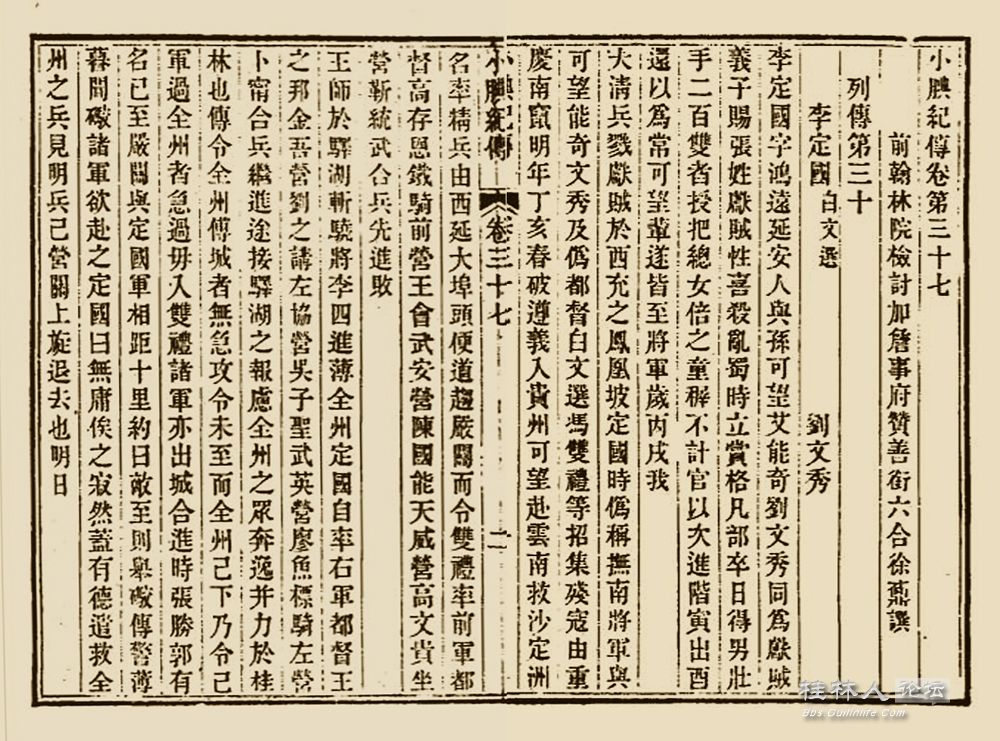 小腆紀傳卷第三十七
前翰林院檢討加詹事府贊善銜六合徐鼒譔
列傳第三十
李定國 白文選 劉文秀
李定國字鴻遠延安人與孫可望艾能奇劉文秀同爲獻賊
義子賜張姓獻賊性喜殺亂蜀時立賞格凡部卒日得男壯
手二百雙者授把總女倍之童穉不計官以次進階寅出酉
還以爲常可望輩遂皆至將軍歲丙戌我
大清兵戮獻賊於西充之鳳凰坡定國時僞稱撫南將軍與
可望能奇文秀及僞都督白文選馮雙禮等招集殘寇由重
慶南竄明年丁亥春破遵義入貴州可望赴雲南救沙定洲
小腆紀傳 卷三十七 二
名率精兵由西延大埠頭便道趨嚴關而令雙禮率前軍都
督高存恩鐵騎前營王會武安營陳國能天威營高文貴坐
營靳統武合兵先進敗
王師於驛湖斬驍將李四進薄全州定國自率右軍都督王
之邦金吾營劉之講左協營吳子聖武英營廖魚標騎左營
卜甯合兵繼進途接驛湖之報慮全州之眾奔逸并力於桂
林也傳令全州傅城者無急攻令未至而全州已下乃令己
軍過全州者急過毋入雙禮諸軍亦出城合進時張勝郭有
名已至嚴關與定國軍相距十里約曰敵至則舉礮傳警薄
暮聞礮諸軍欲赴之定國曰無庸俟之寂然蓋有德遣救全
州之兵見明兵已營關上旋退去也明日
桂林人论坛
Bbs.Guilinlife.Com